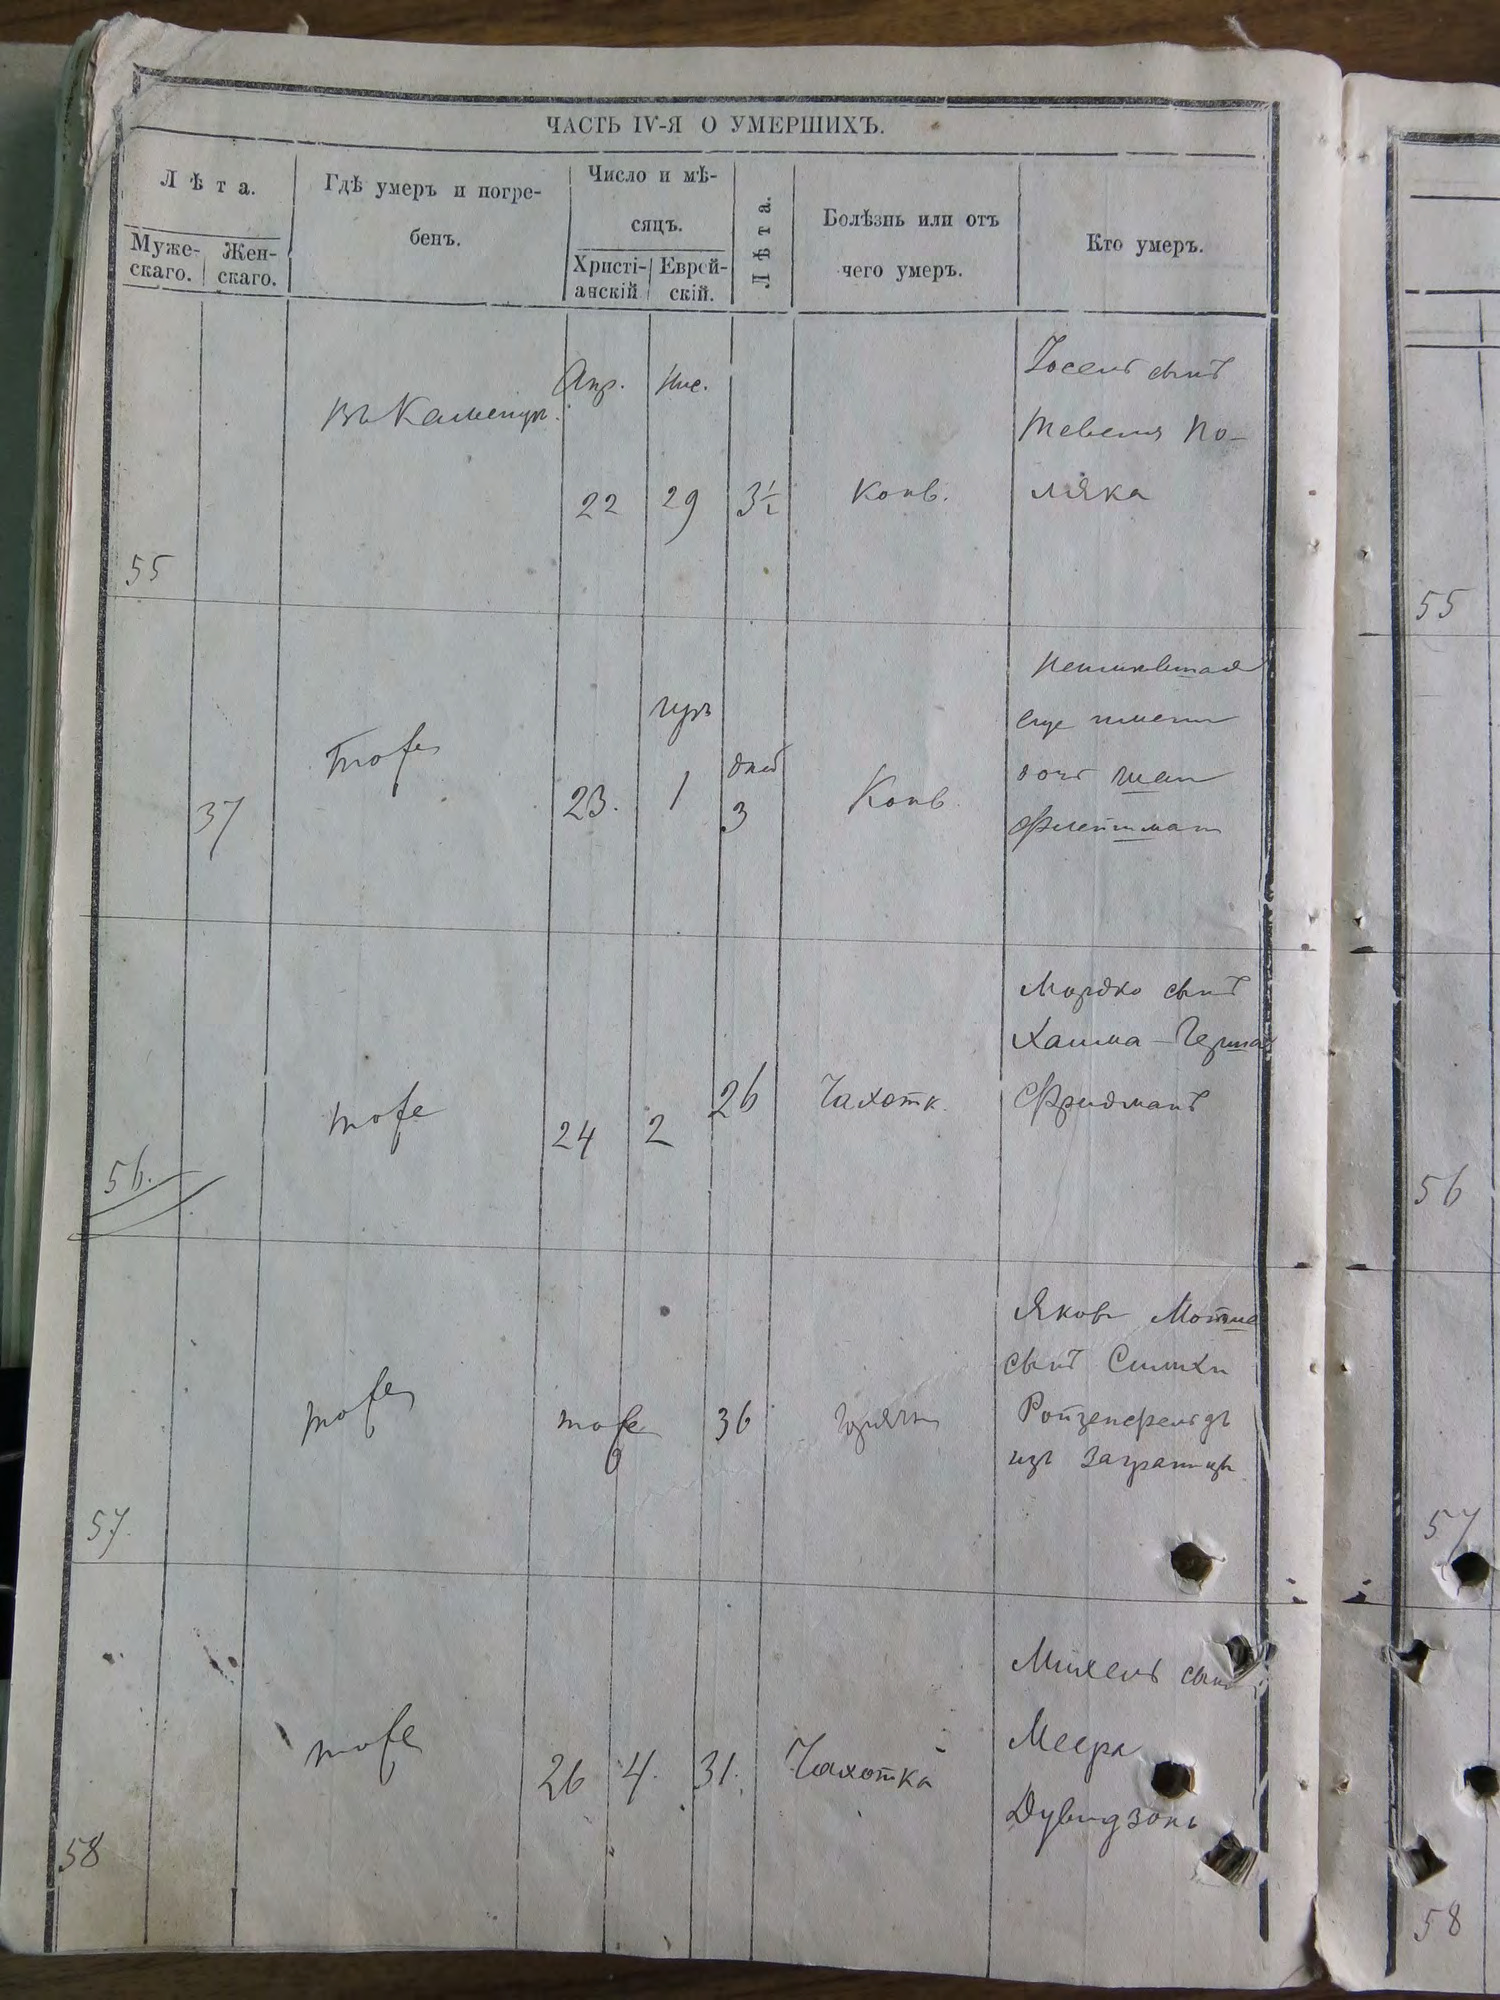 ЧАСТЬ IV-Я О УМЕРШИХЪ.
Лѣта.
Муже-скаго.
Жен-скаго.
Гдѣ умеръ и погре-
бенъ.
Число и мѣ-
сяцъ.
Христі-
анскій
Еврей-
скій.
Лѣта.
Болѣзнь или отъ
чего умеръ.
Кто умеръ.
55
въ Каменцѣ.
Апр. 22
Нис. 29
3½
Конв.
Іосель сынъ
Тевеля По-
ляка
55
37
тоже
23.
іяръ 1
дней 3
Конв.
неимѣвшая
еще имени
дочь
Флейшман
56.
тоже
24
2
26
Чахотк.
Мордко сынъ
Хаима-Герша
Фридманъ
56
57.
тоже
тоже
36
Яковъ
сынъ Симхи
Ройзенфельдъ
изъ заграницы
57
58
тоже
26
4.
31.
Чахотка
Михель сынъ
Меера
Дувидзонъ
58